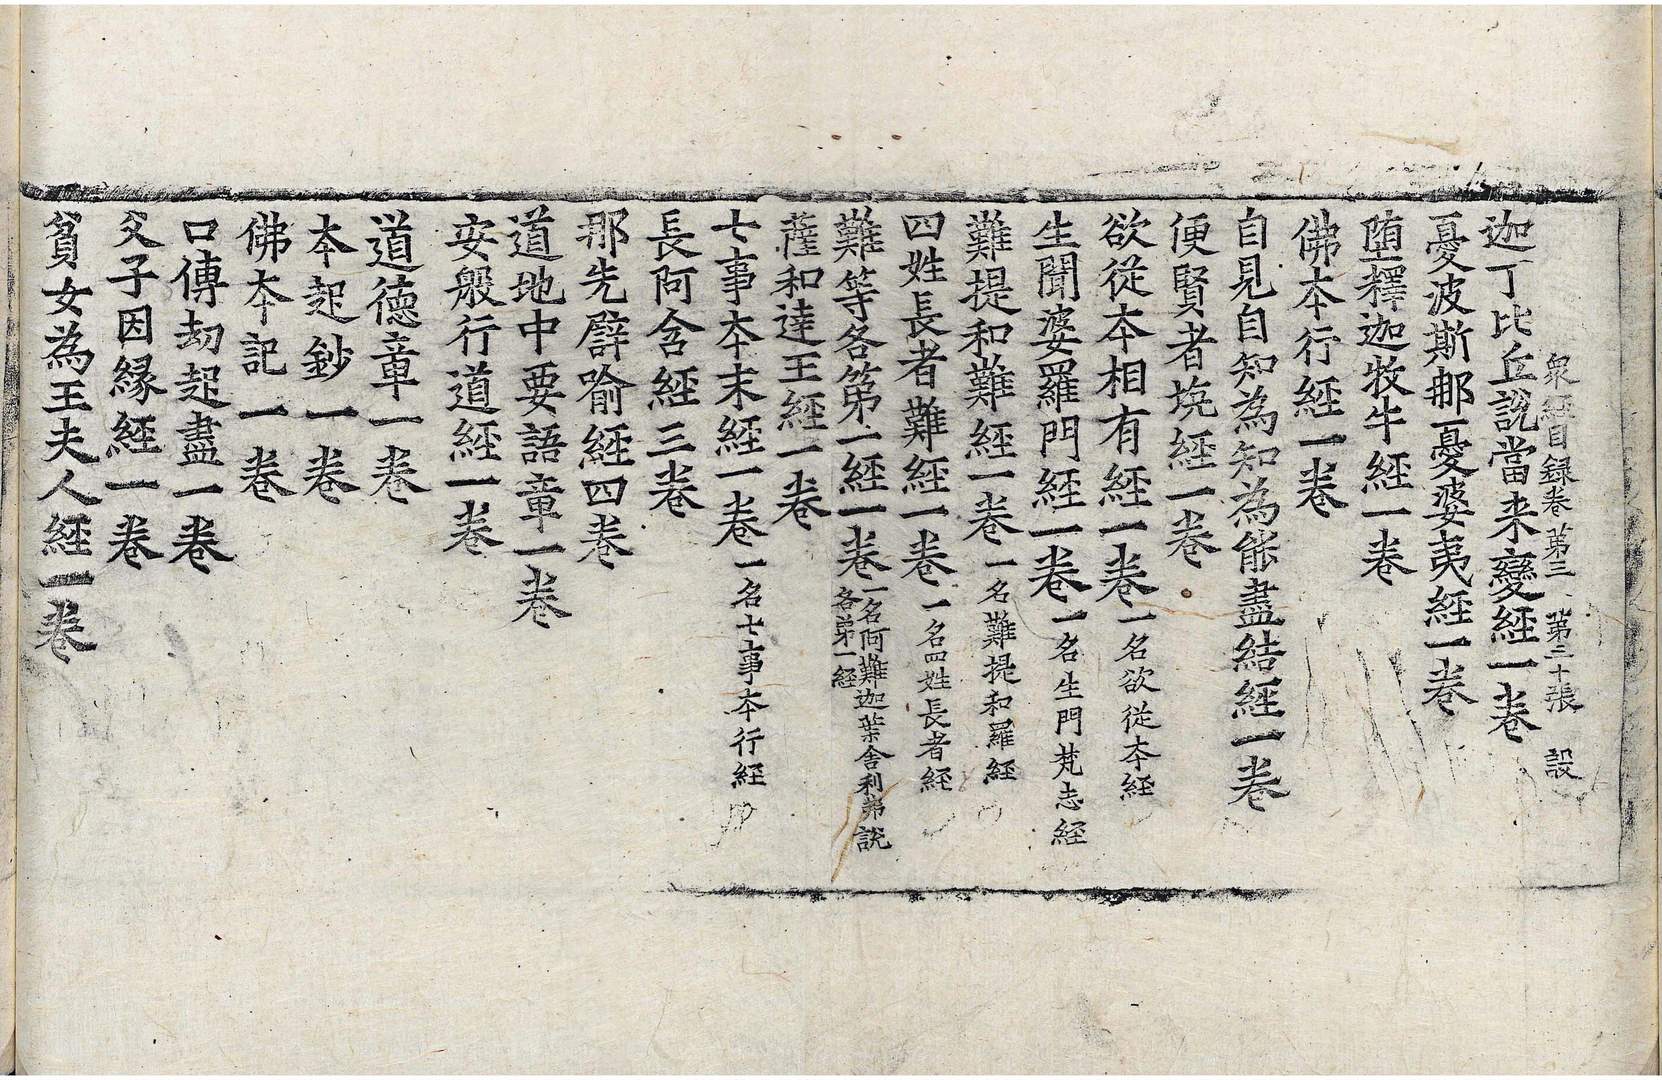 衆経目録卷第三 第二十張 設
迦丁比丘說當来變經一卷
憂波斯那憂婆夷經一卷
墮釋迦牧牛經一卷
佛夲行經一卷
自見自知為知為能盡結經一卷
便賢者坑經一卷
欲從夲相有經一卷一名欲從夲經
生聞婆羅門經一卷一名生門梵志經
難提和難經一卷一名難提和羅經
四姓長者難經一卷一名四姓長者經
難等各第一經一卷一名阿難迦葉舍利弗說各第一經
薩和達王經一卷
七事夲末經一卷一名七事夲行經
長阿含經三卷
那先譬喻經四卷
道地中要語章一卷
安般行道經一卷
道德章一卷
夲起鈔一卷
佛夲記一卷
口傳劫起盡一卷
父子因縁經一卷
貧女為王夫人經一卷